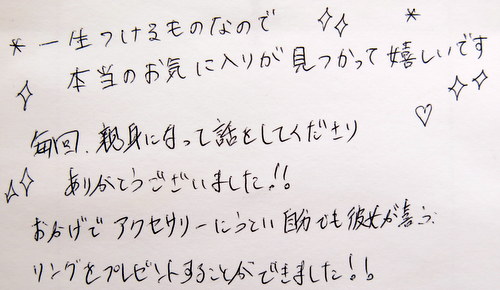 * 一生つけるものなので *
本当のお気に入りが見つかって嬉しいです
毎回、親身になって話をしてくださり
ありがとうございました!!
おかげでアクセサリーにうとい自分でも彼女が喜ぶ
リングをプレゼントすることができました!!